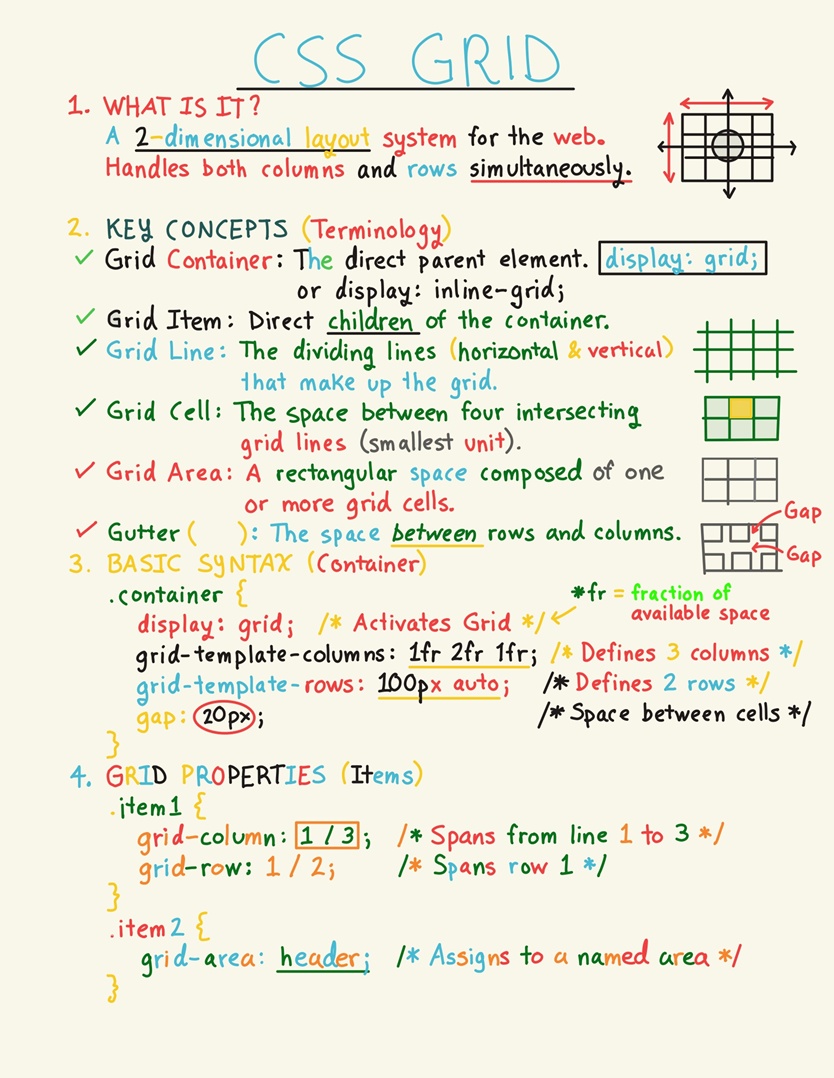 CSS GRID
1. WHAT IS IT?
A 2-dimensional layout system for the web.
Handles both columns and rows simultaneously.
2. KEY CONCEPTS (Terminology)
✓ Grid Container: The direct parent element. display: grid;
or display: inline-grid;
✓ Grid Item: Direct children of the container.
✓ Grid Line: The dividing lines (horizontal & vertical)
that make up the grid.
✓ Grid Cell: The space between four intersecting
grid lines (smallest unit).
✓ Grid Area: A rectangular space composed of one
or more grid cells.
✓ Gutter ( ): The space between rows and columns.
Gap
Gap
3. BASIC SYNTAX (Container)
.container {
*fr = fraction of
available space
display: grid; /* Activates Grid */
grid-template-columns: 1fr 2fr 1fr; /* Defines 3 columns */
grid-template-rows: 100px auto; /* Defines 2 rows */
gap: 20px; /* Space between cells */
}
4. GRID PROPERTIES (Items)
.item1 {
grid-column: 1 / 3; /* Spans from line 1 to 3 */
grid-row: 1 / 2; /* Spans row 1 */
}
.item2 {
grid-area: header; /* Assigns to a named area */
}